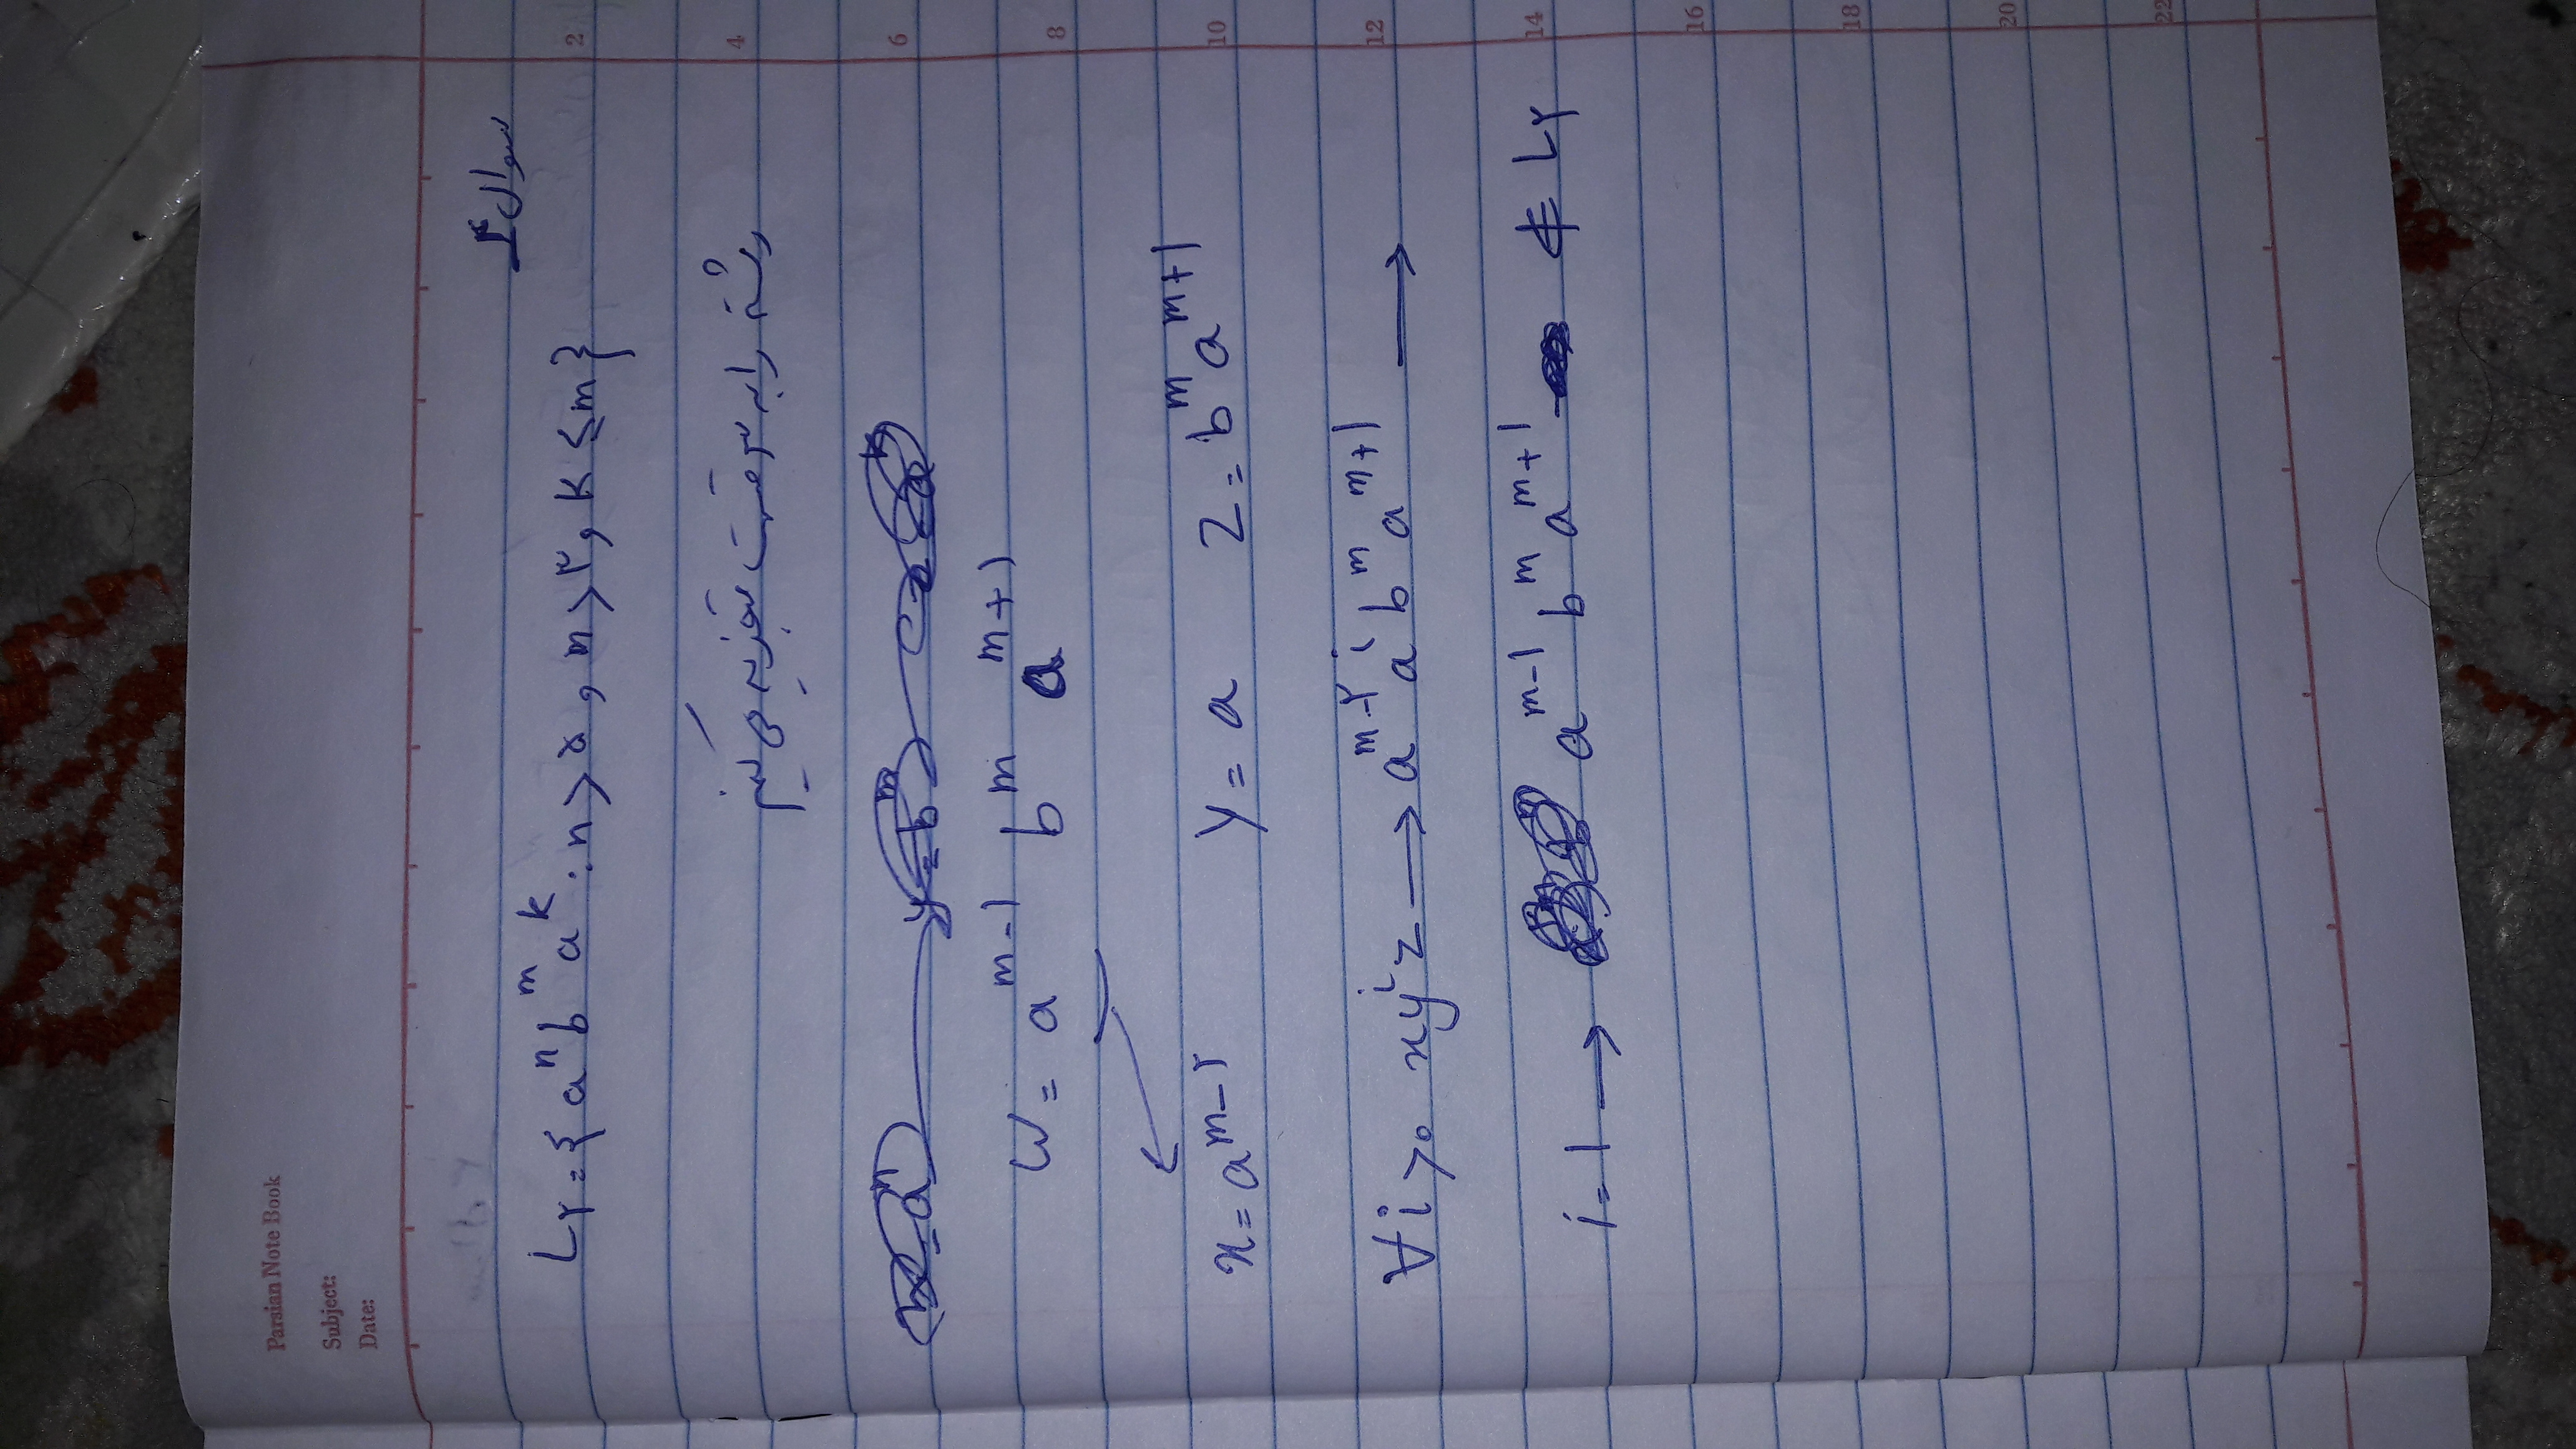 Parsian Note Book
Subject:
Date:
سوال ۴
L₂ = { aⁿ bᵐ aᵏ : n > ۵ , m > ۳ , k ≤ m }
رشته را به ۳ قسمت تجزیه می کنیم
w = a^{m-1} b^m a^{m+1}
x = a^{m-۲} y = a z = b^m a^{m+1}
∀i ≥ 0 xy^i z → a^{m-۲} a^i b^m a^{m+1} →
i = 1 → a^{m-1} b^m a^{m+1} ∉ L₂
2
4
6
8
10
12
14
16
18
20
22